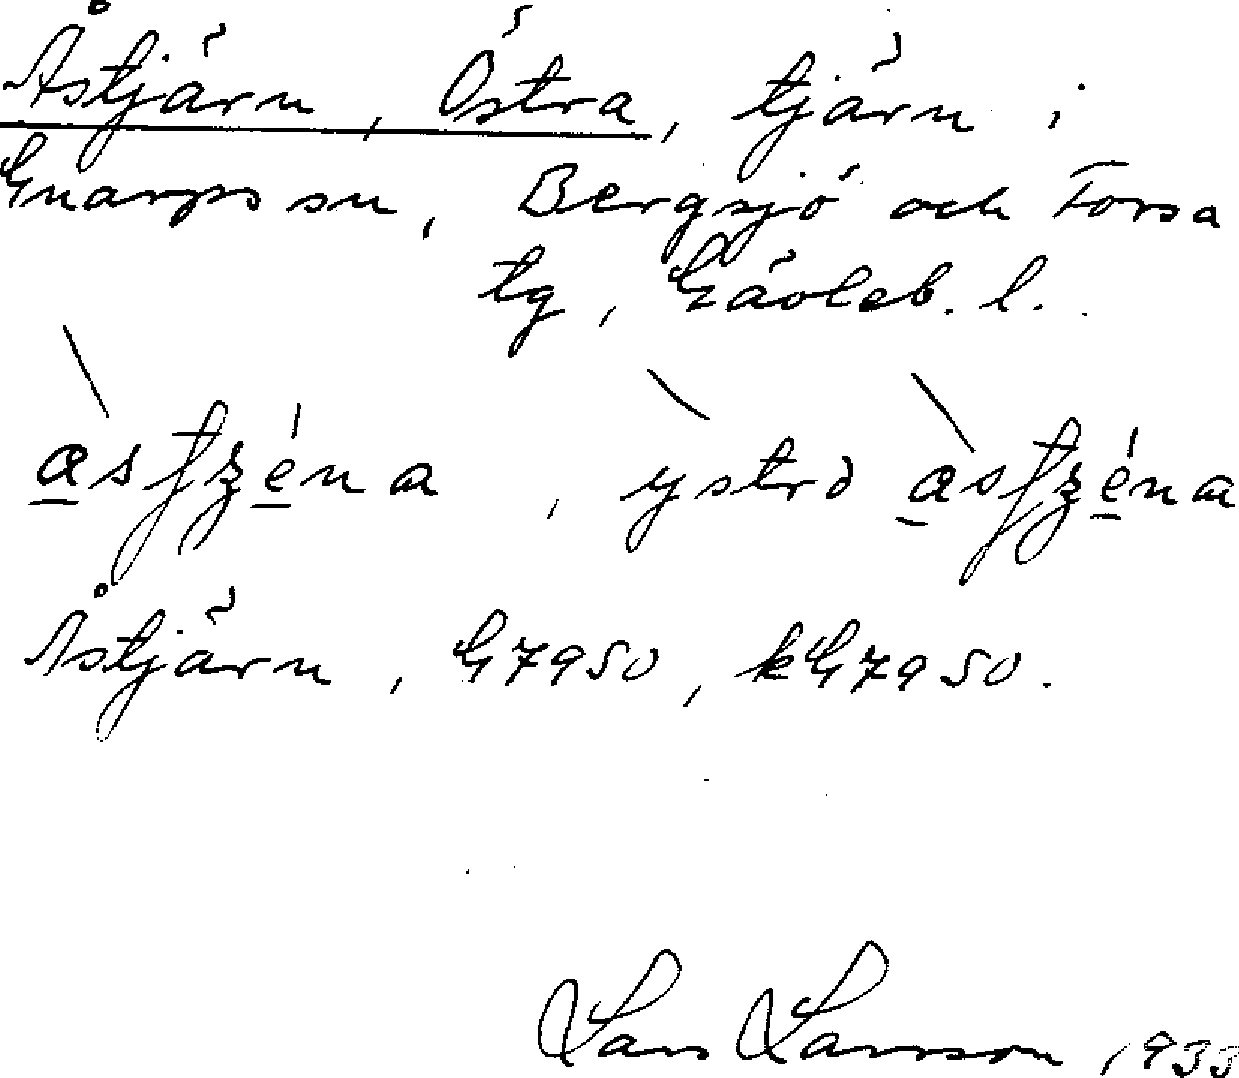 Åstjärn, Östra, tjärn i
Gnarps sn, Bergsjö och Forsa
tg, Gävleb. l.
Åstjärn, G7950, kG7950.
Lars Larsson 1933